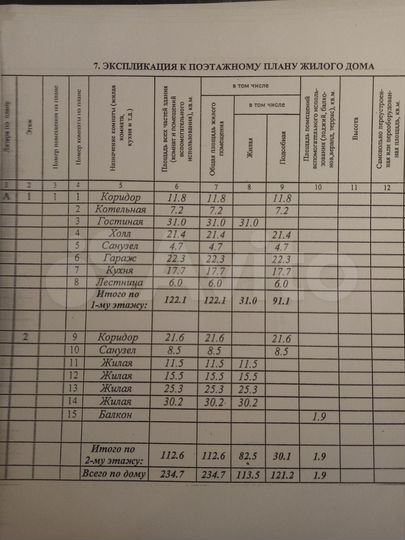 7. ЭКСПЛИКАЦИЯ К ПОЭТАЖНОМУ ПЛАНУ ЖИЛОГО ДОМА
Литера по плану
Этаж
Номер помещения на плане
Номер комнаты на плане
Назначение комнаты (жилая комната, кухня и т.д.)
Площадь всех частей здания (комнат и помещений вспомогательного использования), кв.м
Общая площадь жилого помещения
в том числе
в том числе
Жилая
Подсобная
Площадь помещений вспомогательного использования (лоджий, балконов, веранд, террас), кв.м
Высота
Самовольно переустроенная или переоборудованная площадь, кв.м
1 2 3 4 5 6 7 8 9 10 11 12
А 1 1 1 Коридор 11.8 11.8 11.8
2 Котельная 7.2 7.2 7.2
3 Гостиная 31.0 31.0 31.0
4 Холл 21.4 21.4 21.4
5 Санузел 4.7 4.7 4.7
6 Гараж 22.3 22.3 22.3
7 Кухня 17.7 17.7 17.7
8 Лестница 6.0 6.0 6.0
Итого по
1-му этажу: 122.1 122.1 31.0 91.1
2 9 Коридор 21.6 21.6 21.6
10 Санузел 8.5 8.5 8.5
11 Жилая 11.5 11.5 11.5
12 Жилая 15.5 15.5 15.5
13 Жилая 25.3 25.3 25.3
14 Жилая 30.2 30.2 30.2
15 Балкон 1.9
Итого по
2-му этажу: 112.6 112.6 82.5 30.1 1.9
Всего по дому 234.7 234.7 113.5 121.2 1.9
Avito